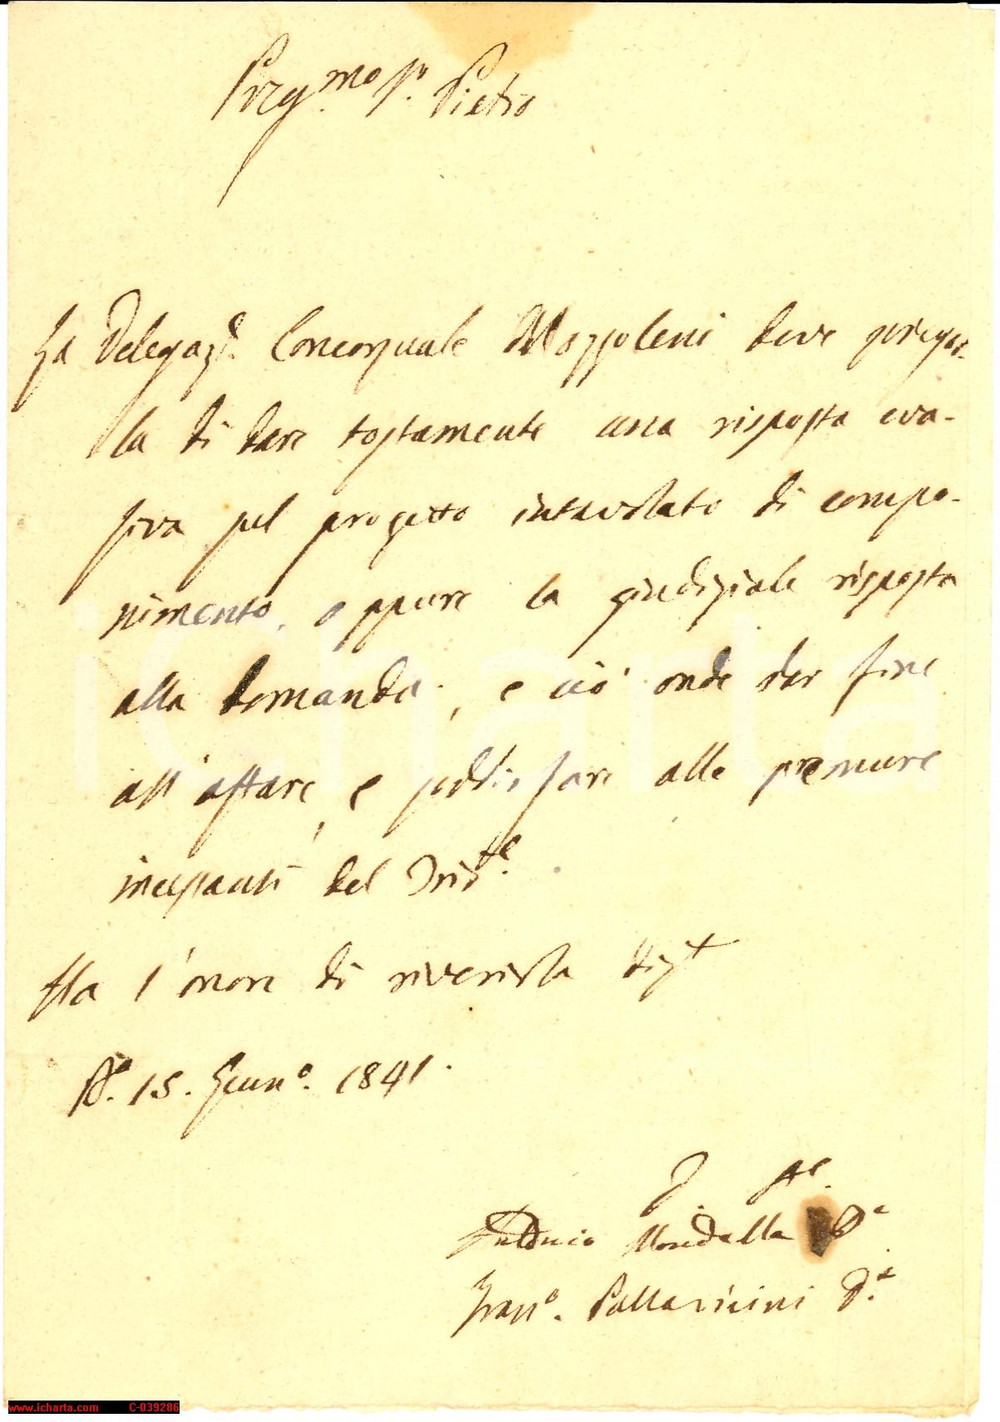 Preg.mo Sr. Pietro
La Delegaz.e Concorsuale Mazzoleni deve pregar-
la di dare tostamente una risposta eva-
siva pel progetto intavolato di compo-
nimento, oppure la giudiziale risposta
alla domanda, e ciò onde dar fine
all'affare, e soddisfare alle premure
incessanti del Trib.le
Ha l'onore di riverirla dist
15. Genn.o 1841.
Antonio Mondella D.e
Fran.o Pallavicini D.e
www.icharta.com C-039286
icharta